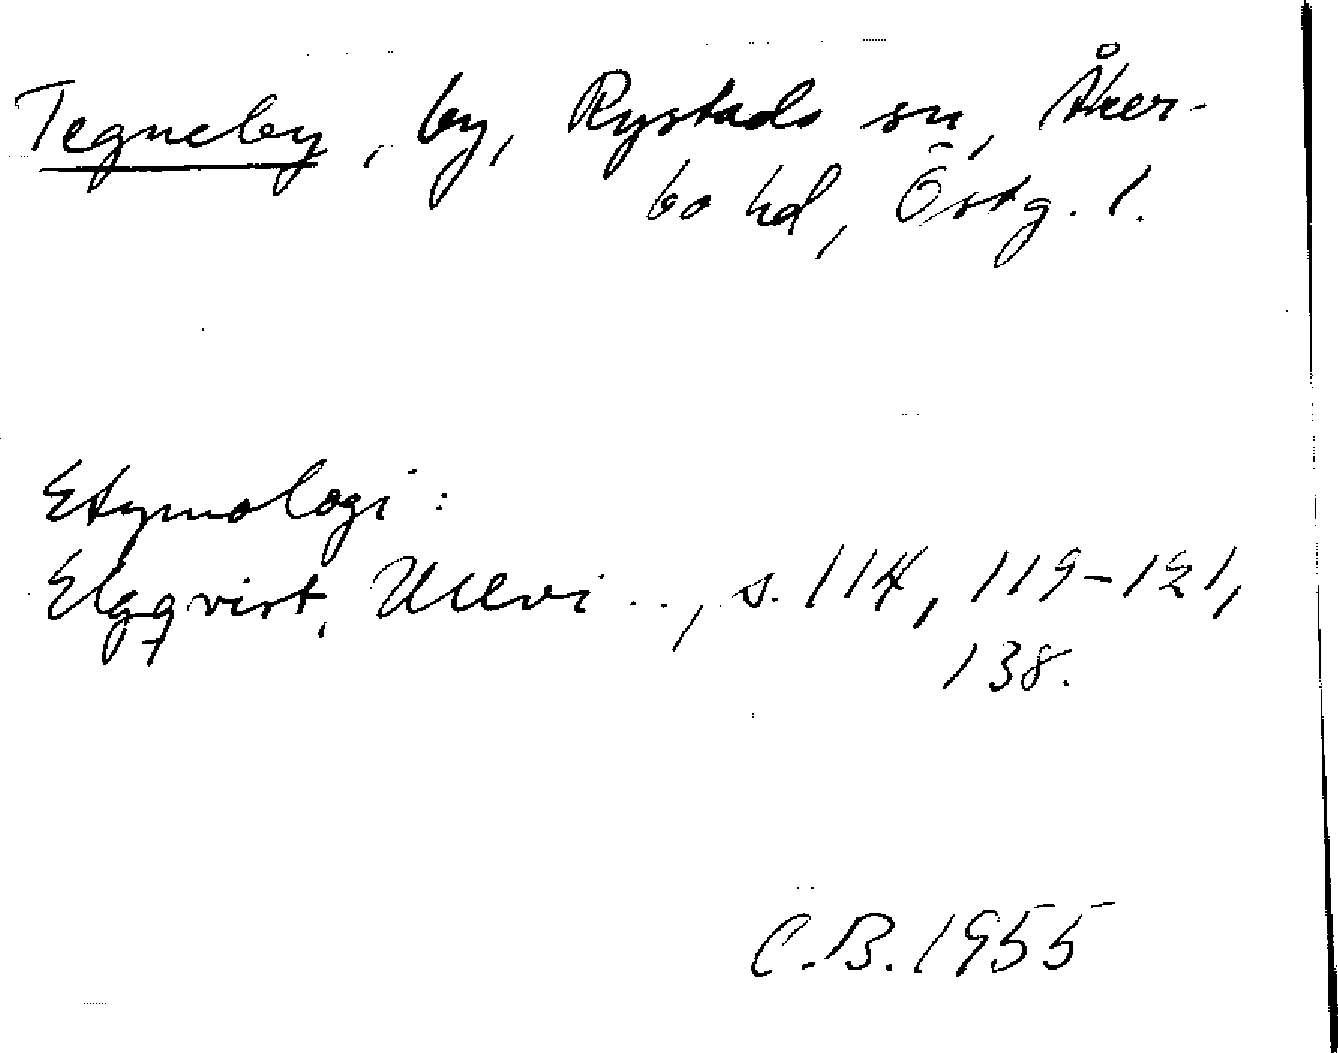 Tegneby, by, Rystads sn, Åker-
bo hd, Östg. l.
Etymologi:
Elgqvist, Ullvi .., s. 114, 119-121,
138.
C.B. 1955